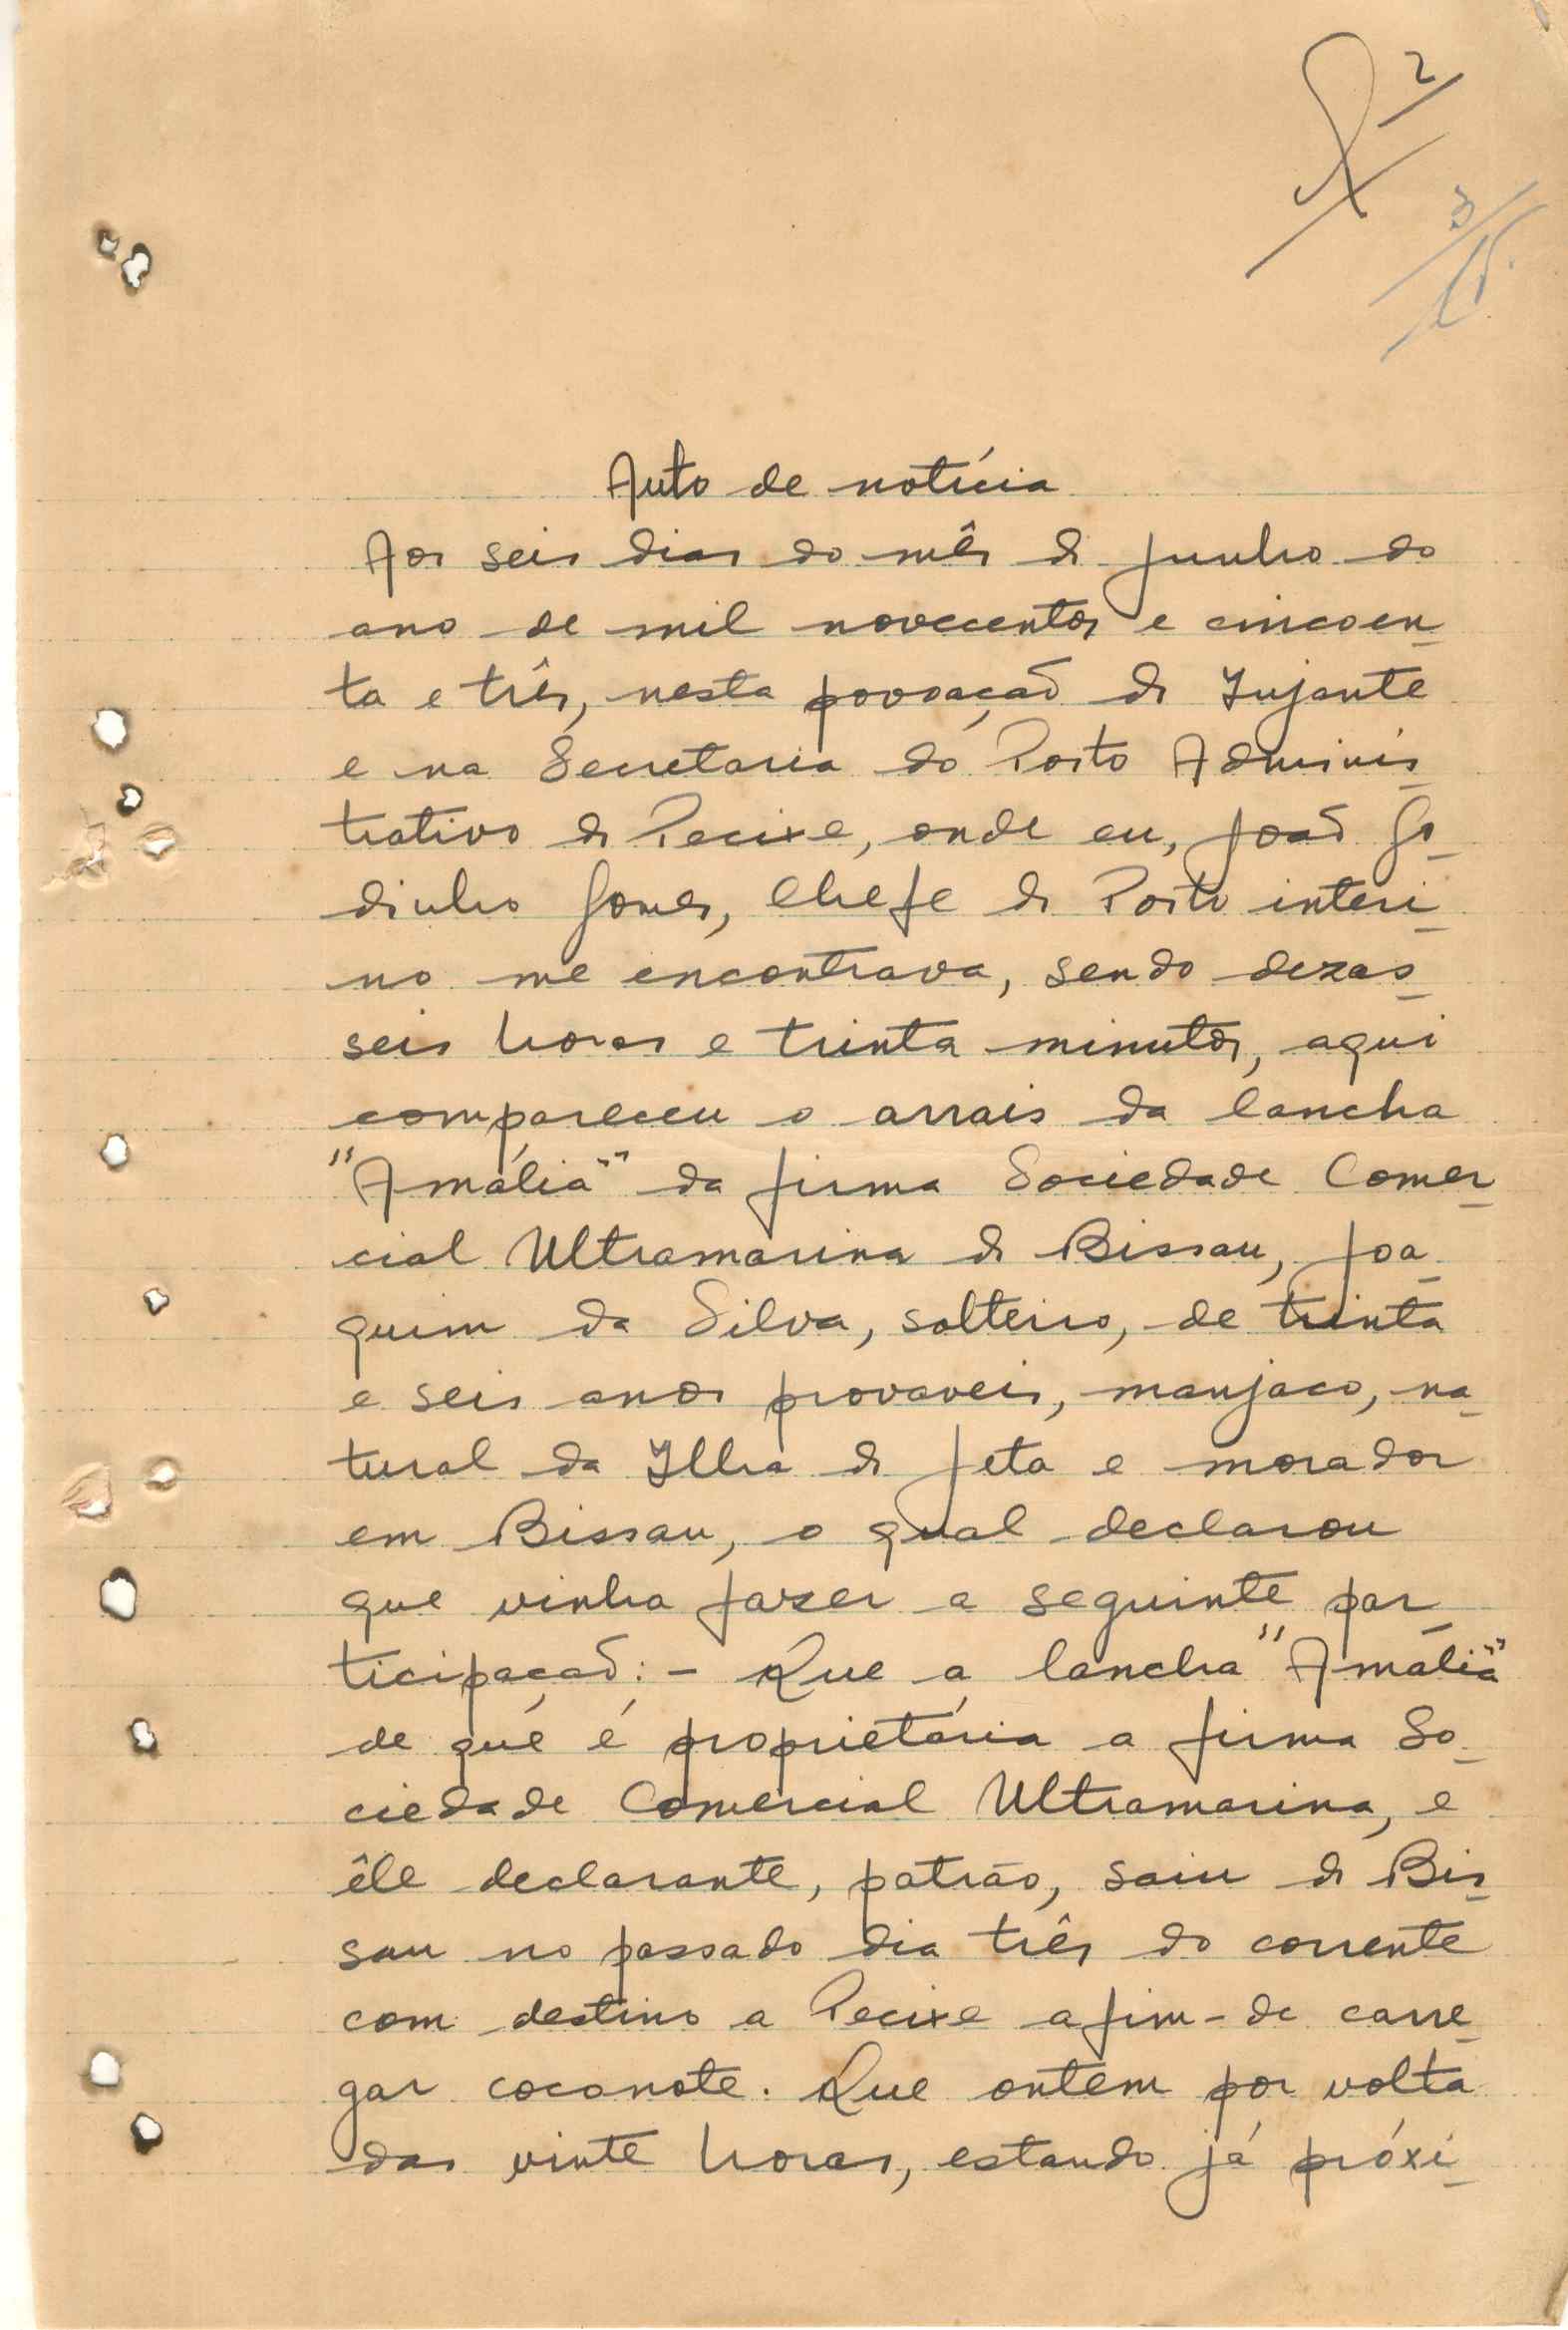 2
3
Auto de notícia
Aos seis dias do mês de Junho do
ano de mil novecentos e cincoen-
ta e três, nesta povoação de Jujante
e na Secretaria do Posto Adminis-
trativo de Pecixe, onde eu, João Go-
dinho Gomes, Chefe de Posto interi-
no me encontrava, sendo dezas-
seis horas e trinta minutos, aqui
compareceu o arrais da lancha
"Amália" da firma Sociedade Comer-
cial Ultramarina de Bissau, Joa-
quim da Silva, solteiro, de trinta
e seis anos provaveis, manjaco, na-
tural da Ilha de Jeta e morador
em Bissau, o qual declarou
que vinha fazer a seguinte par-
ticipação:- Que a lancha "Amália"
de que é proprietária a firma So-
ciedade Comercial Ultramarina, e
êle declarante, patrão, saiu de Bis-
sau no passado dia três do corrente
com destino a Pecixe afim-de carre-
gar coconote. Que ontem por volta
das vinte horas, estando já próxi-